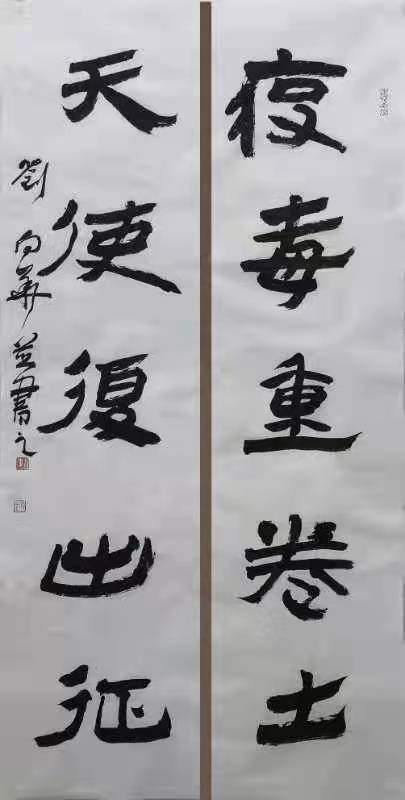 疫毒重卷土
天使復出征
劉向華並書之